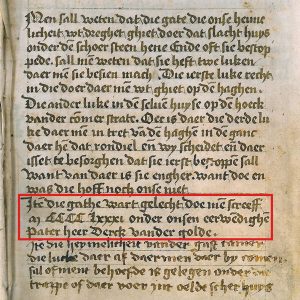 Men sall weten dat die gate die onse heime
licheit wt dreghet ghiet doer dat slacht huys
onder de schoer steen hene Ende oft sie bestop
pede. sall mē weten dat sie heft twe luken
daer mē sie besien mach. Die ierste luke recht
in die doer daer mē wt ghiet op de haghen.
Die ander luke in de seluē huyse op de hoerck
vander comer strate. Oec is daer die derde lu
ke daer mē in tret vā de haghē in de ganc
daer he dat rondiel en wy scheidet en daer
isset te besorghen dat sie ierst bestoppen sall
want daer van daen is sie engher want doe en
was die hoff noch onse niet
Itē die grathe wart gelecht doe mē screeff
m CCCC lxxxi onder onsen eerwedighē
Pater heer Derck vander golde.
It die heymelicheit vander gast camer
die luke daer af daer men daer by comen
sal of mens behoefde is gelegen onder de
trappe of daer voer int oelde scher huys